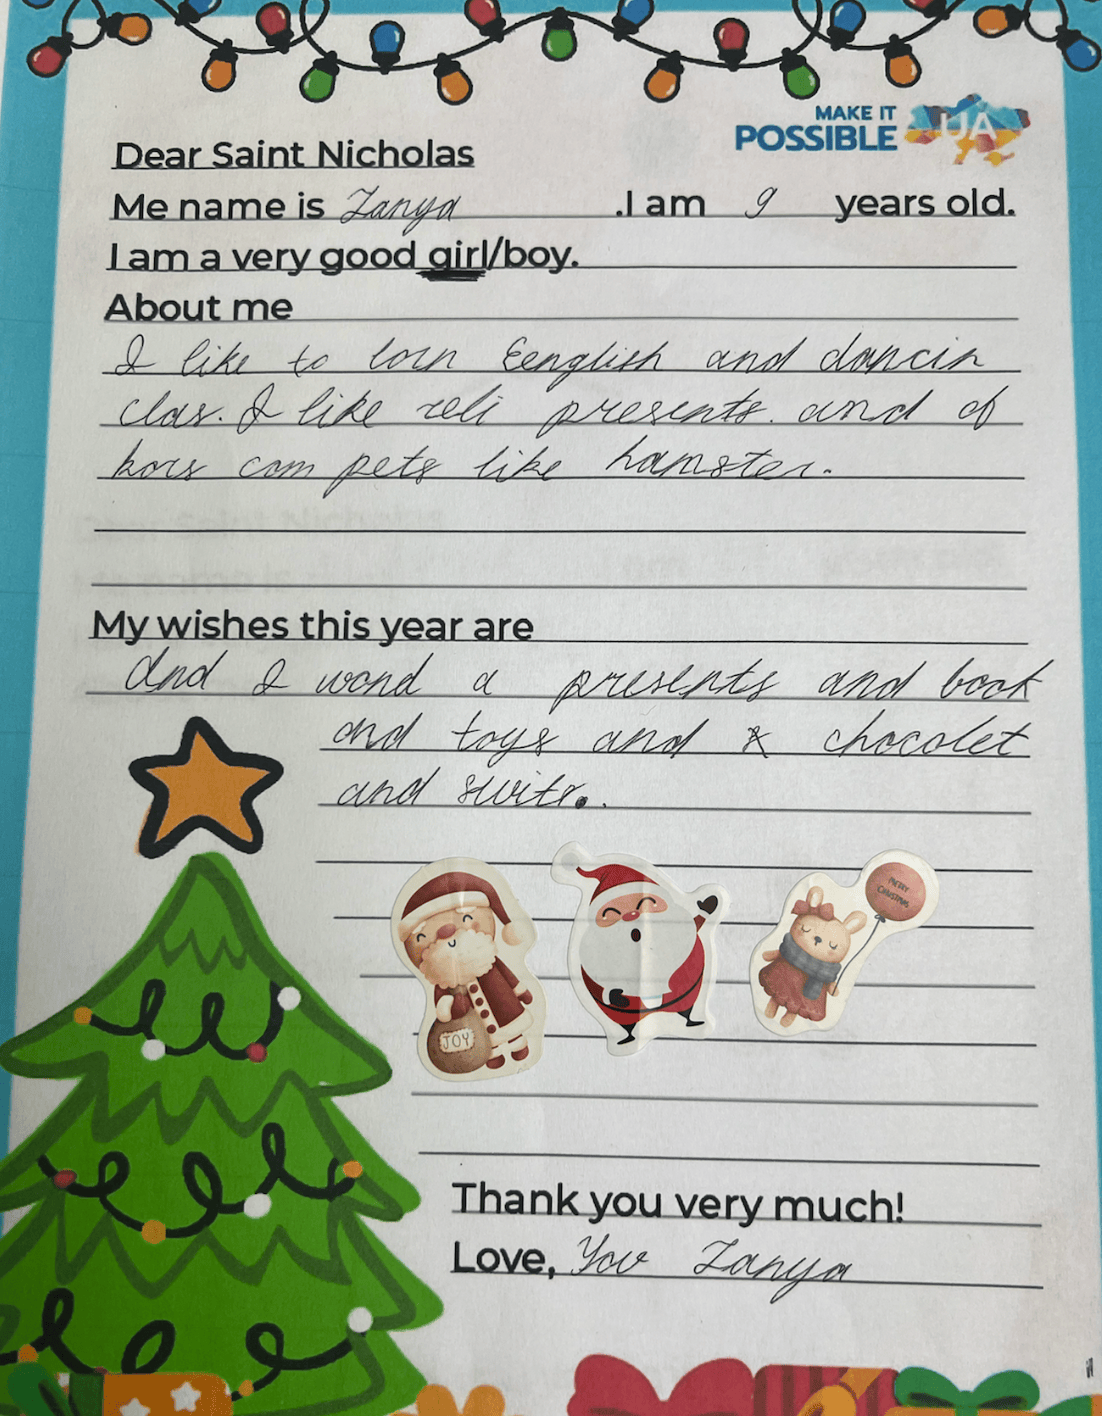 MAKE IT
POSSIBLE
UA
Dear Saint Nicholas
Me name is Zanya .I am 9 years old.
I am a very good girl/boy.
About me
I like to lorn Eenglish and dancin
clas. I like reli presents. and of
kors com pets like hamster.
My wishes this year are
And I wond a presents and book
and toys and chocolet
and switr.
JOY
MERRY
CHRISTMAS
Thank you very much!
Love, You Zanya